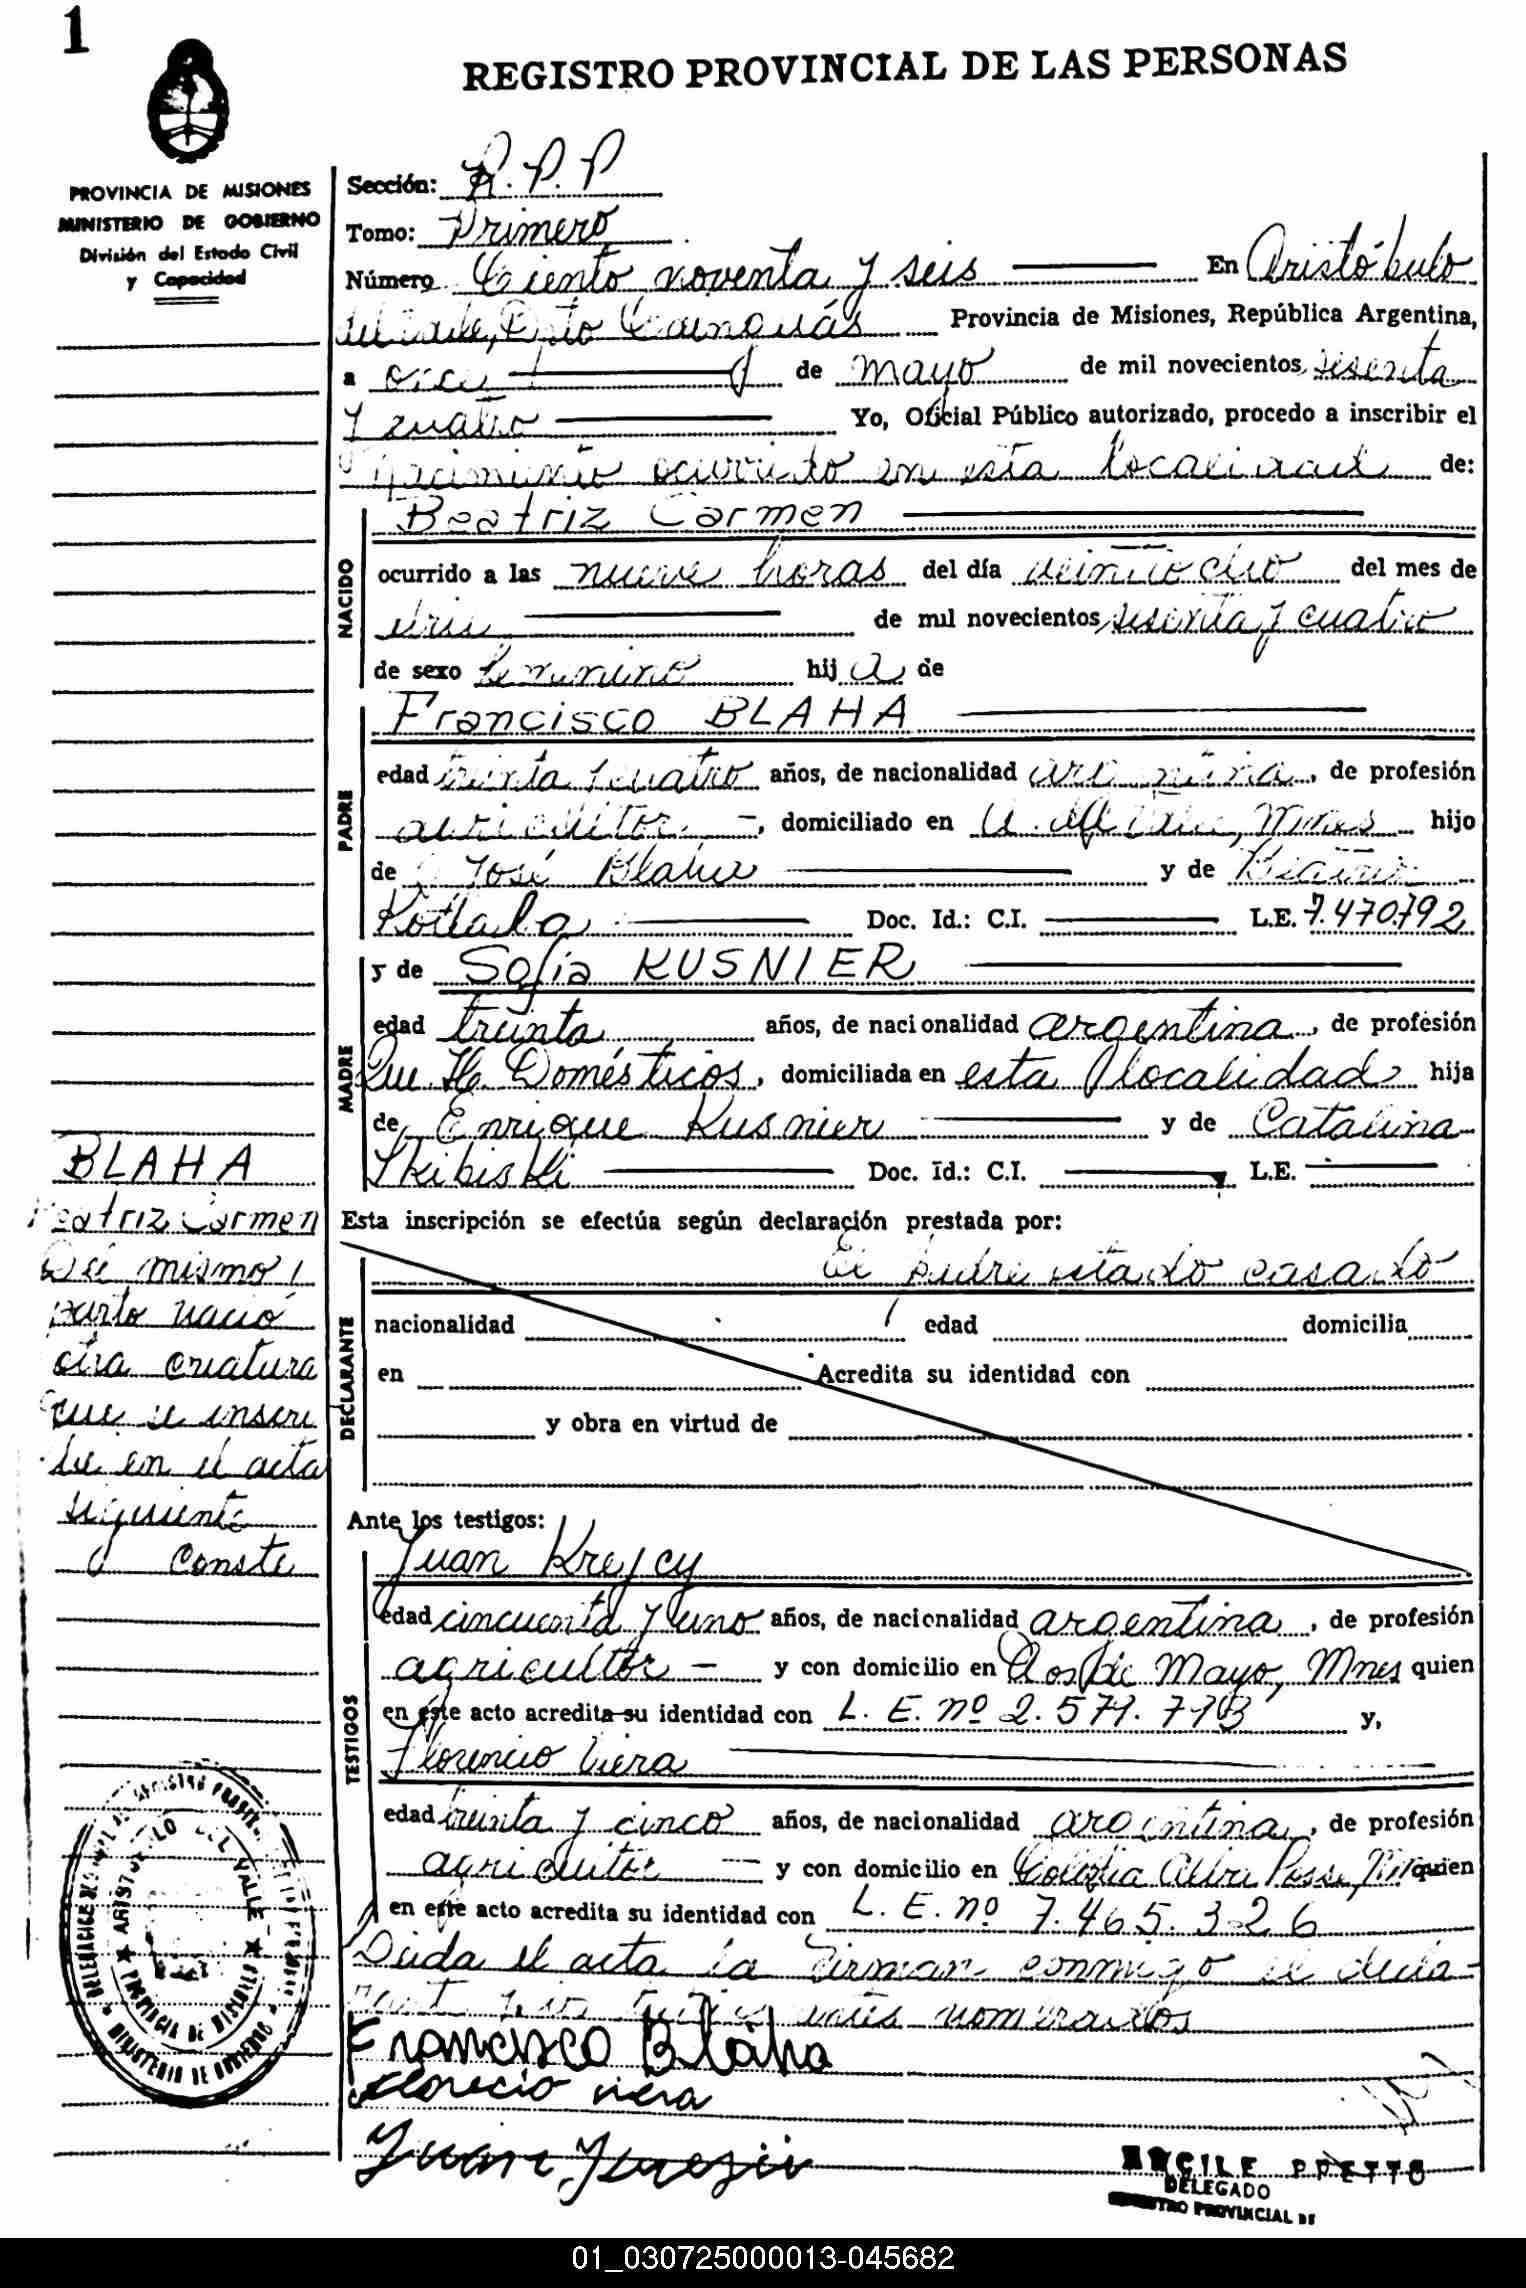 1
REGISTRO PROVINCIAL DE LAS PERSONAS
PROVINCIA DE MISIONES
MINISTERIO DE GOBIERNO
División del Estado Civil
y Capacidad
Sección: R.P.P
Tomo: Primero
Número Ciento noventa y seis En Aristóbulo
del Valle, Dpto Cainguás Provincia de Misiones, República Argentina,
a once de mayo de mil novecientos sesenta
y cuatro Yo, Oficial Público autorizado, procedo a inscribir el
Nacimiento ocurrido en esta localidad de:
NACIDO
Beatriz Carmen
ocurrido a las nueve horas del día veintiocho del mes de
de mil novecientos sesenta y cuatro
de sexo femenino hija de
PADRE
Francisco BLAHA
edad treinta y cuatro años, de nacionalidad argentina, de profesión
agricultor -, domiciliado en A. del Valle, Mnes hijo
de José Blaha y de
Kotlala Doc. Id.: C.I. L.E. 7.470.792
MADRE
y de Sofia KUSNIER
edad treinta años, de nacionalidad argentina, de profesión
Que H. Domésticos, domiciliada en esta localidad hija
de Enrique Kusnier y de Catalina
Skibiski Doc. Id.: C.I. L.E.
Esta inscripción se efectúa según declaración prestada por:
DECLARANTE
El padre estado casado
nacionalidad edad domicilia
en Acredita su identidad con
y obra en virtud de
Ante los testigos:
TESTIGOS
Juan Krejcy
edad cincuenta y uno años, de nacionalidad argentina, de profesión
agricultor - y con domicilio en Dos de Mayo, Mnes quien
en éste acto acredita su identidad con L. E. nº y,
Florencio Viera
edad treinta y cinco años, de nacionalidad argentina, de profesión
agricultor y con domicilio en Colonia Alba Posse, quien
en este acto acredita su identidad con L. E. nº 7.465.326
Leida el acta la firman conmigo el decla-
rante y los testigos antes nombrados
Francisco Blaha
Florecio viera
Juan
BLAHA
Beatriz Carmen
Del mismo
parto nació
otra criatura
que se inscri
be en el acta
siguiente
Conste
ARISTOBULO DEL VALLE
PROVINCIA DE MISIONES
MINISTERIO DE GOBIERNO
DELEGADO
REGISTRO PROVINCIAL DE
01_030725000013-045682